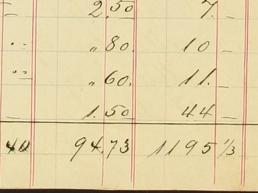 – 2.50 7. –
" " 80. 10 –
" " 60. 11. –
– 1.50 44 –
40 94.73 1195 1/3